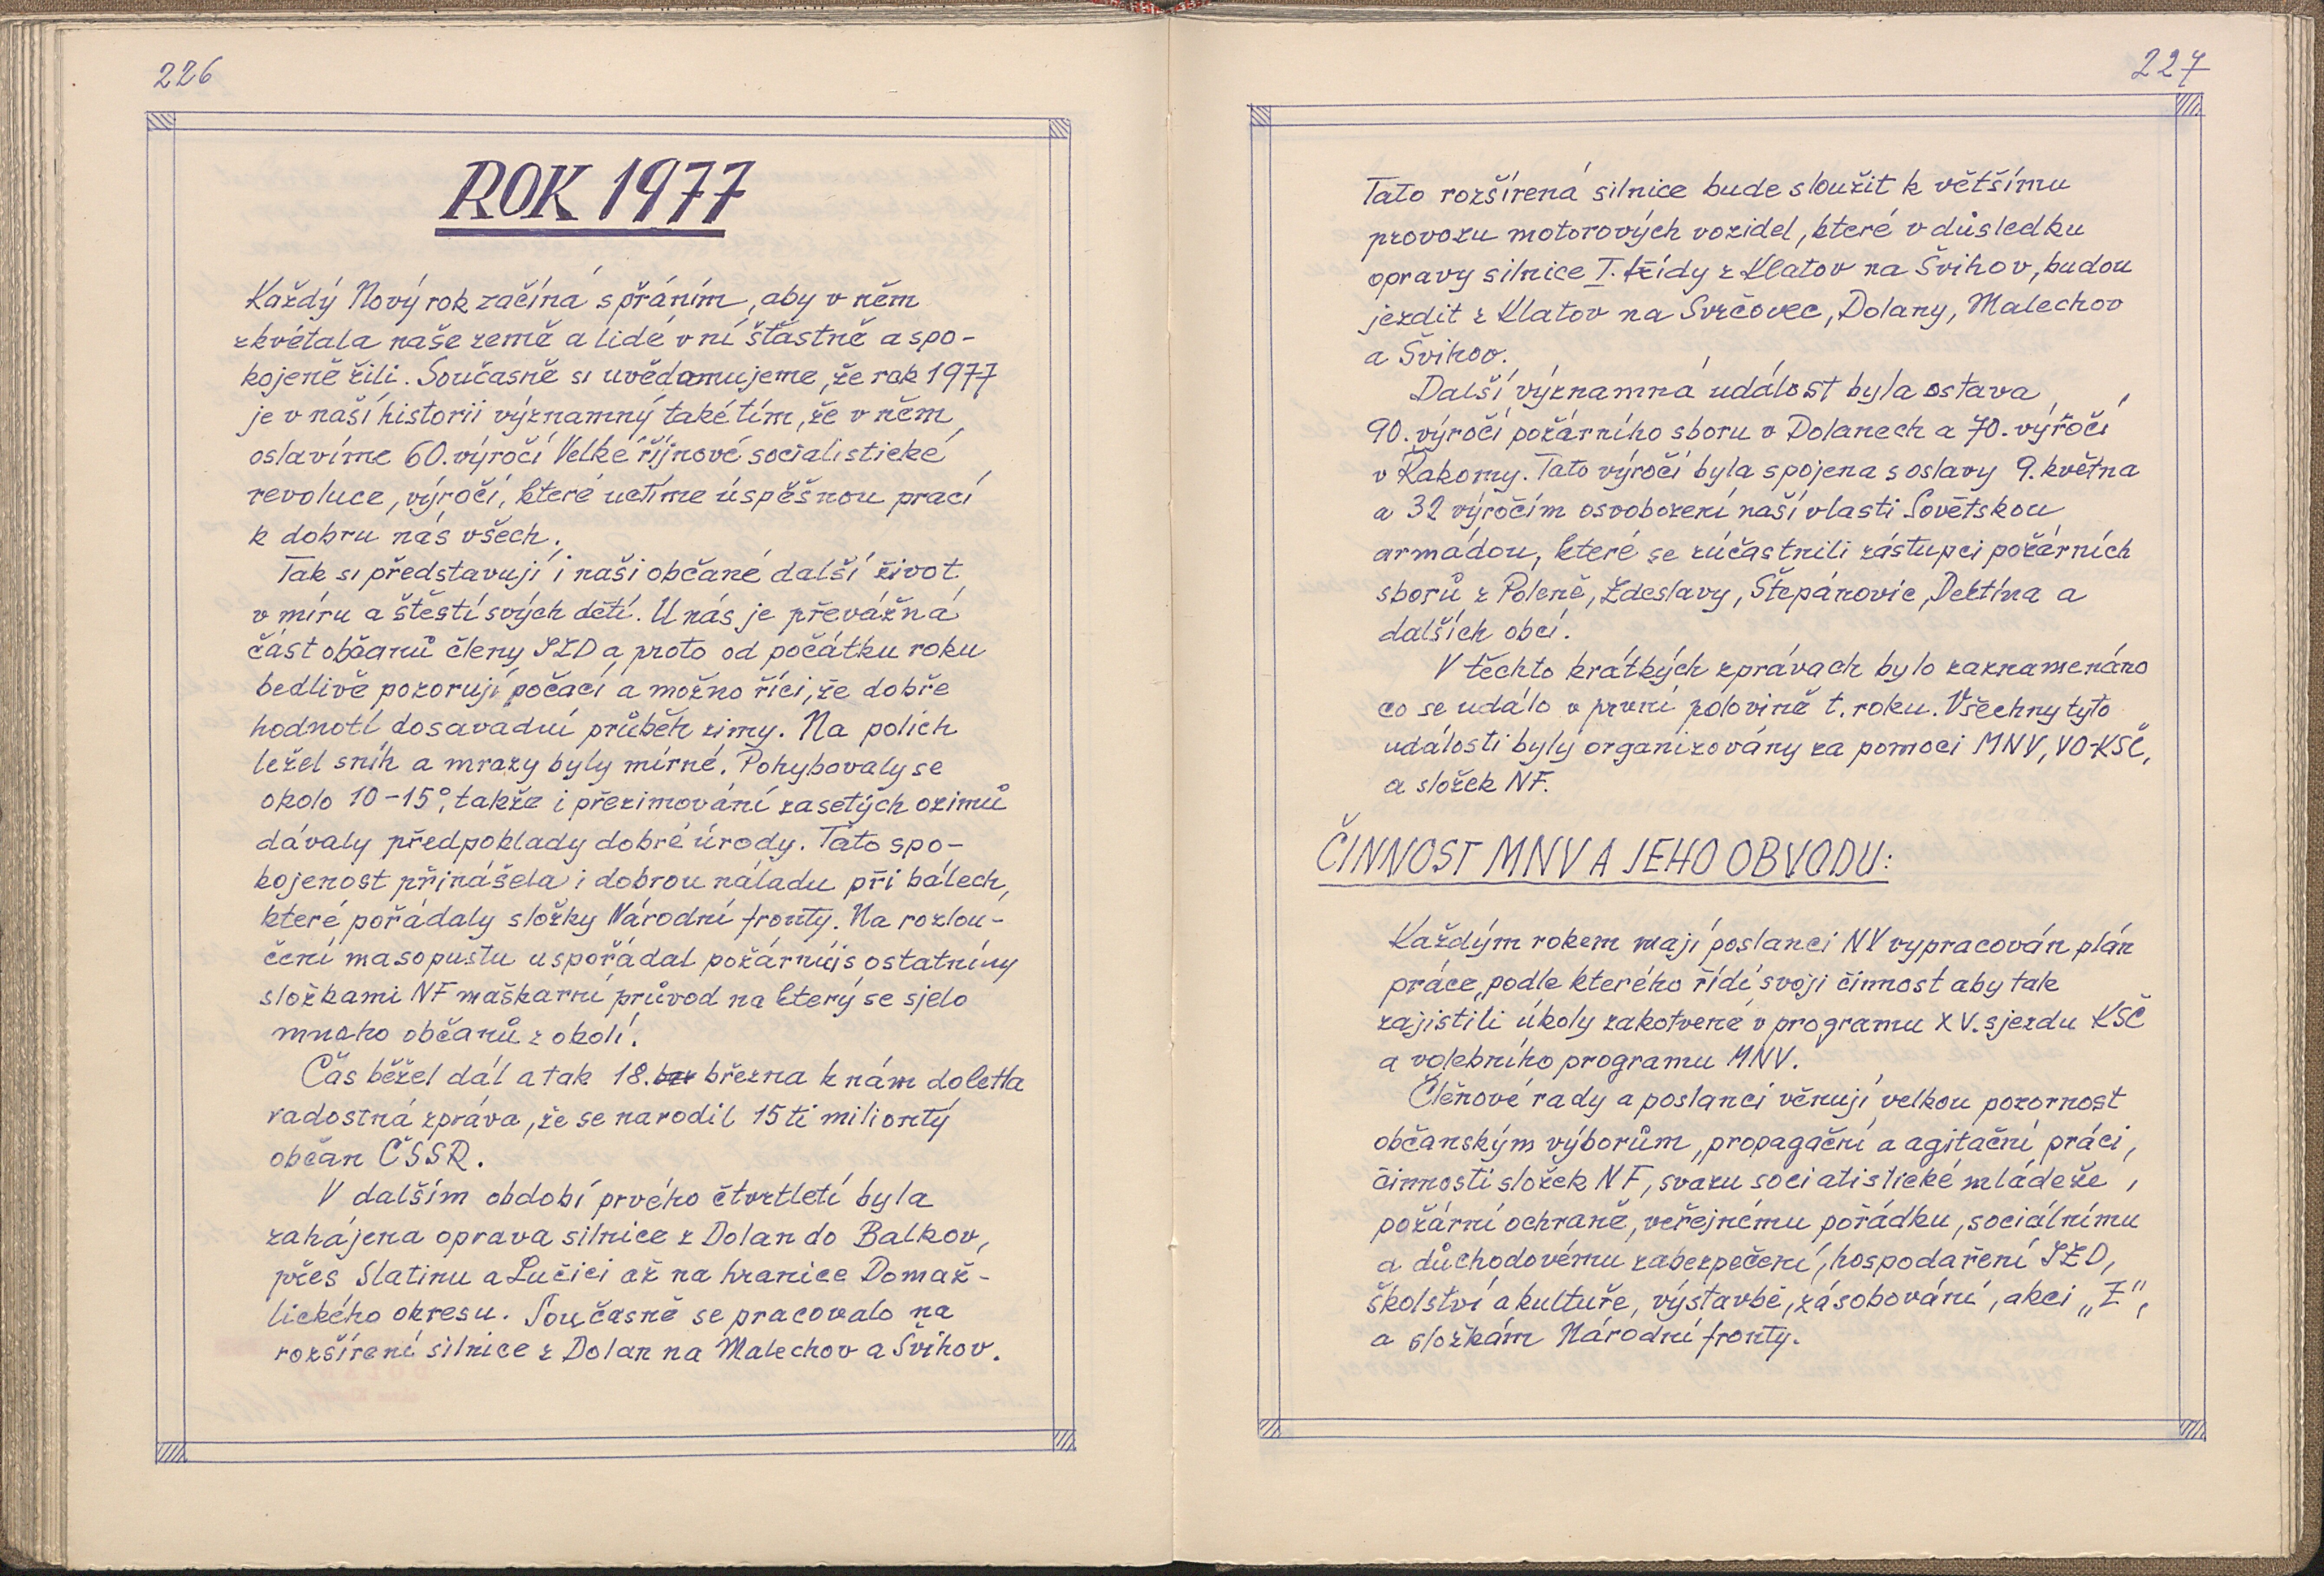 226
ROK 1977
Každý Nový rok začíná s přáním, aby v něm
zkvétala naše země a lidé v ní šťastně a spo-
kojeně žili. Současně si uvědomujeme, že rok 1977
je v naší historii významný také tím, že v něm
oslavíme 60. výročí Velké říjnové socialistické
revoluce, výročí, které uctíme úspěšnou prací
k dobru nás všech.
Tak si představují i naši občané další život
v míru a štěstí svých dětí. U nás je převážná
část občanů členy JZD a proto od počátku roku
bedlivě pozorují počací a možno říci, že dobře
hodnotí dosavadní průběh zimy. Na polích
ležel sníh a mrazy byly mírné. Pohybovaly se
okolo 10-15°, takže i přezimování zasetých ozimů
dávaly předpoklady dobré úrody. Tato spo-
kojenost přinášela i dobrou náladu při bálech,
které pořádaly složky Národní fronty. Na rozlou-
čení masopustu uspořádal požárníjs ostatními
složkami NF maškarní průvod na který se sjelo
mnoho občanů z okolí.
Čas běžel dál a tak 18. března k nám doletla
radostná zpráva, že se narodil 15ti miliontý
občan ČSSR.
V dalším období prvého čtvrtletí byla
zahájena oprava silnice z Dolan do Balkov,
přes Slatinu a Lučici až na hranice Domaž-
lického okresu. Současně se pracovalo na
rozšíření silnice z Dolan na Malechov a Švihov.
227
Tato rozšířená silnice bude sloužit k většímu
provozu motorových vozidel, které v důsledku
opravy silnice I. třídy z Klatov na Švihov, budou
jezdit z Klatov na Svrčovec, Dolany, Malechov
a Švihov.
Další významná událost byla ostava
90. výročí požárního sboru v Dolanech a 70. výročí
v Řakomy. Tato výročí byla spojena s oslavy 9. května
a 32 výročím osvobození naší vlasti Sovětskou
armádou, které se zúčastnili zástupci požárních
sborů z Poleně, Zdeslavy, Štěpánovic, Dehtína a
dalších obcí.
V těchto krátkých zprávach bylo zaznamenáno
co se událo v první polovině t. roku. Všechny tyto
události byly organizovány za pomoci MNV, VO-KSČ,
a složek NF.
ČINNOST MNV A JEHO OBVODU:
Každým rokem mají poslanci NV vypracován plán
práce, podle kterého řídí svoji činnost aby tak
zajistili úkoly zakotvené v programu XV. sjezdu KSČ
a volebního programu MNV.
Členové rady a poslanci věnují velkou pozornost
občanským výborům, propagační a agitační práci,
činnosti složek NF, svazu socialistické mládeže,
požární ochraně, veřejnému pořádku, sociálnímu
a důchodovému zabezpečení, hospodaření JZD,
školství a kultuře, výstavbě, zásobování, akci „Z",
a složkám Národní fronty.